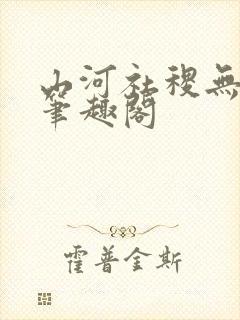 山河社稷無
筆趣閣
霍普金斯